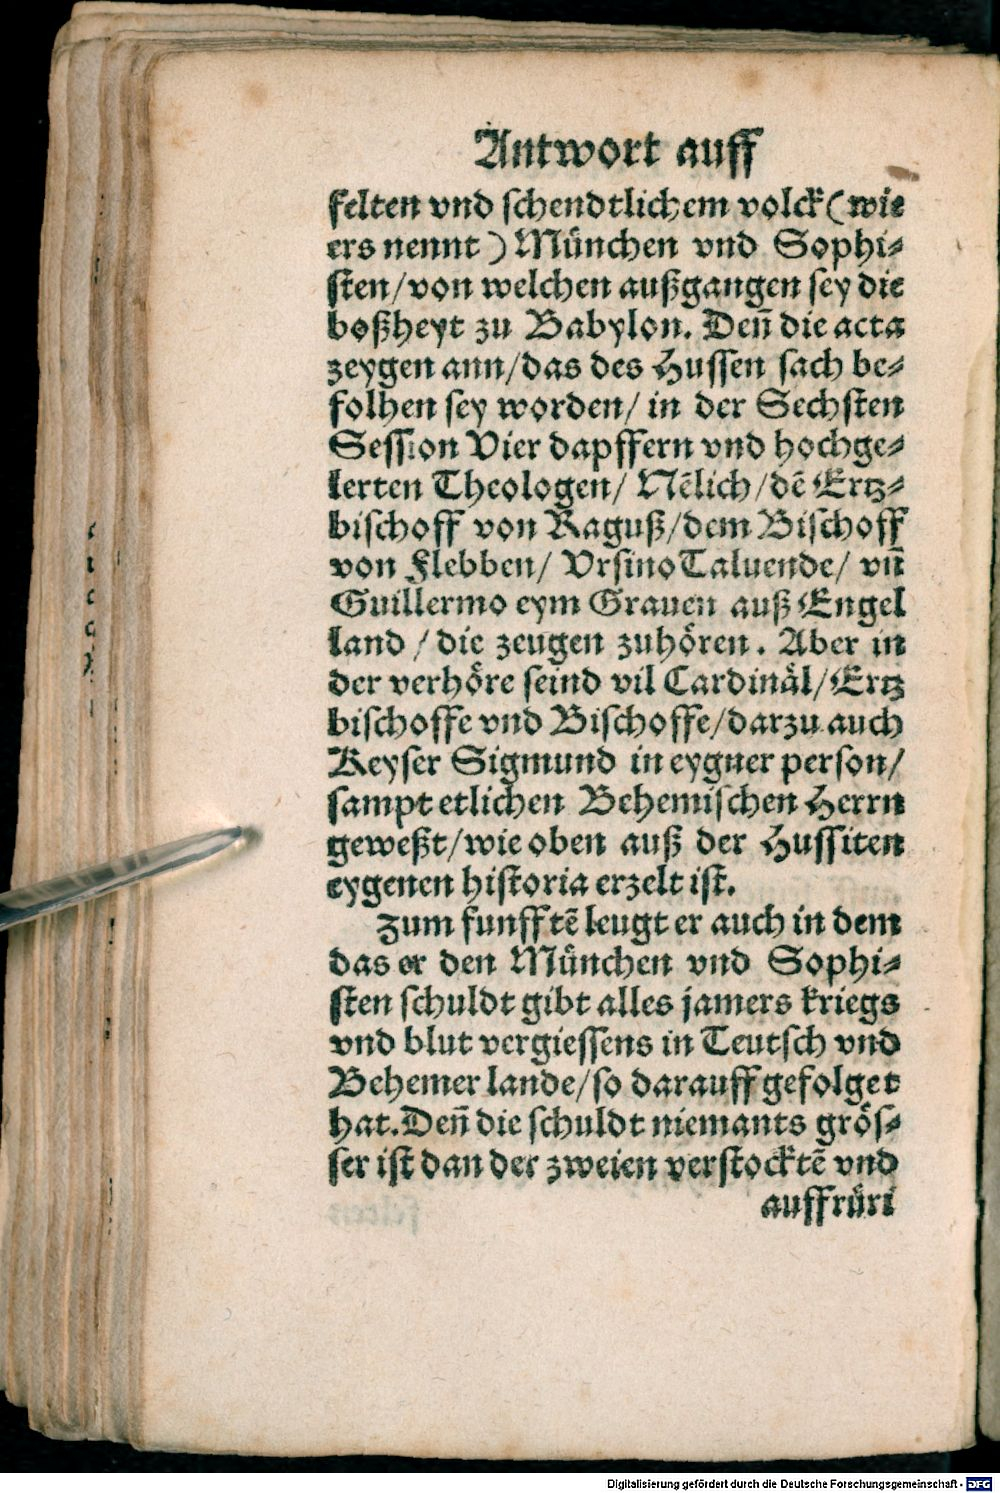 Antwort auff
felten vnd schendtlichem volck (wie
ers nennt) München vnd Sophi⸗
sten/von welchen außgangen sey die
boßheyt zu Babylon. Deñ die acta
zeygen ann/das des Hussen sach be⸗
folhen sey worden/ in der Sechsten
Session Vier dapffern vnd hochge⸗
lerten Theologen/ Nẽlich/dẽ Ertz⸗
bischoff von Raguß/dem Bischoff
von Flebben/ Vrsino Taluende/ vñ
Guillermo eym Grauen auß Engel
land / die zeugen zuhören. Aber in
der verhöre seind vil Cardinäl/Ertz
bischoffe vnd Bischoffe/darzu auch
Keyser Sigmund in eygner person/
sampt etlichen Behemischen Herrn
geweßt/wie oben auß der Hussiten
eygenen historia erzelt ist.
Zum funfftẽ leugt er auch in dem
das er den München vnd Sophi⸗
sten schuldt gibt alles jamers kriegs
vnd blut vergiessens in Teutsch vnd
Behemer lande/so darauff gefolget
hat. Deñ die schuldt niemants grös⸗
ser ist dan der zweien verstocktẽ vnd
auffrüri
Digitalisierung gefördert durch die Deutsche Forschungsgemeinschaft - DFG